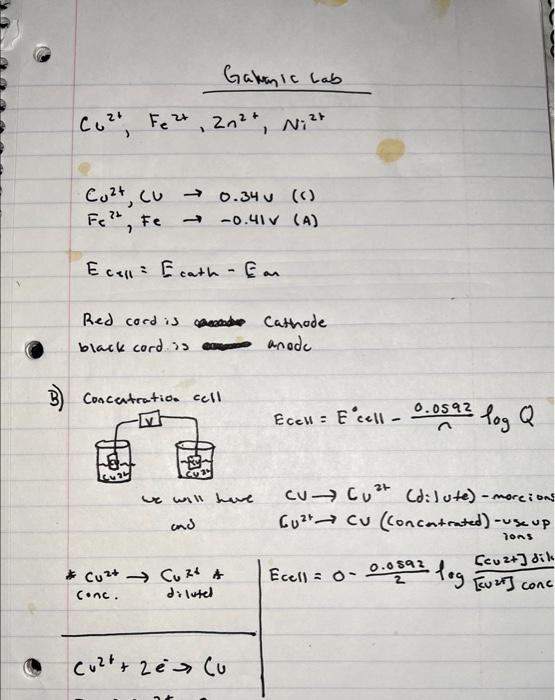 Galvanic Lab
Cu²⁺, Fe²⁺, Zn²⁺, Ni²⁺
Cu²⁺, Cu → 0.34 v (C)
Fe²⁺, Fe → -0.41 v (A)
E cell = E cath - E an
Red cord is Cathode
black cord is anode
B) Concentration cell
V
Cu²⁺ Cu²⁺
Ecell = E°cell - 0.0592/n log Q
we will have Cu → Cu²⁺ (dilute) - more ions
and Cu²⁺ → Cu (concentrated) - use up
ions
* Cu²⁺ → Cu²⁺ *
conc. diluted
Ecell = 0 - 0.0592/2 log [Cu²⁺] dil/[Cu²⁺] conc
Cu²⁺ + 2e⁻ → Cu